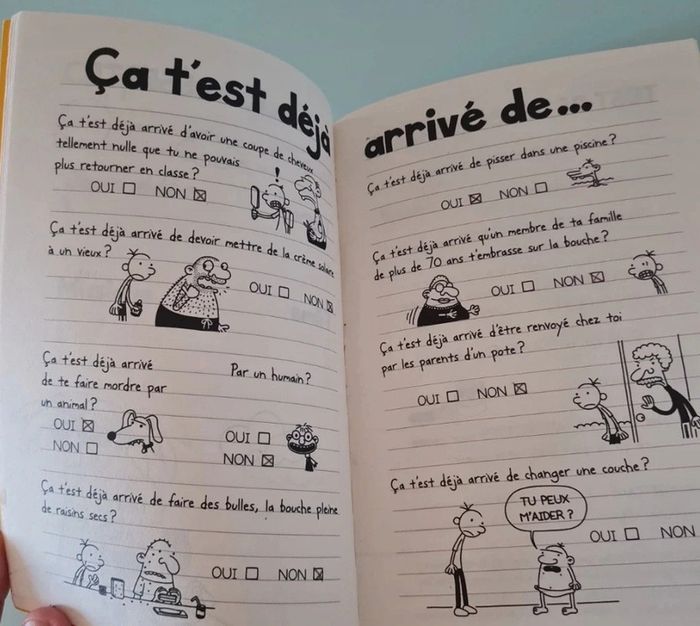 Ça t'est déjà
Ça t'est déjà arrivé d'avoir une coupe de cheveux
tellement nulle que tu ne pouvais
plus retourner en classe ?
OUI NON
!
Ça t'est déjà arrivé de devoir mettre de la crème solaire
à un vieux ?
OUI NON
Ça t'est déjà arrivé
de te faire mordre par
un animal ?
OUI
NON
Par un humain ?
OUI
NON
Ça t'est déjà arrivé de faire des bulles, la bouche pleine
de raisins secs ?
OUI NON
arrivé de...
Ça t'est déjà arrivé de pisser dans une piscine ?
OUI NON
Ça t'est déjà arrivé qu'un membre de ta famille
de plus de 70 ans t'embrasse sur la bouche ?
OUI NON
Ça t'est déjà arrivé d'être renvoyé chez toi
par les parents d'un pote ?
OUI NON
Ça t'est déjà arrivé de changer une couche ?
TU PEUX
M'AIDER ?
OUI NON